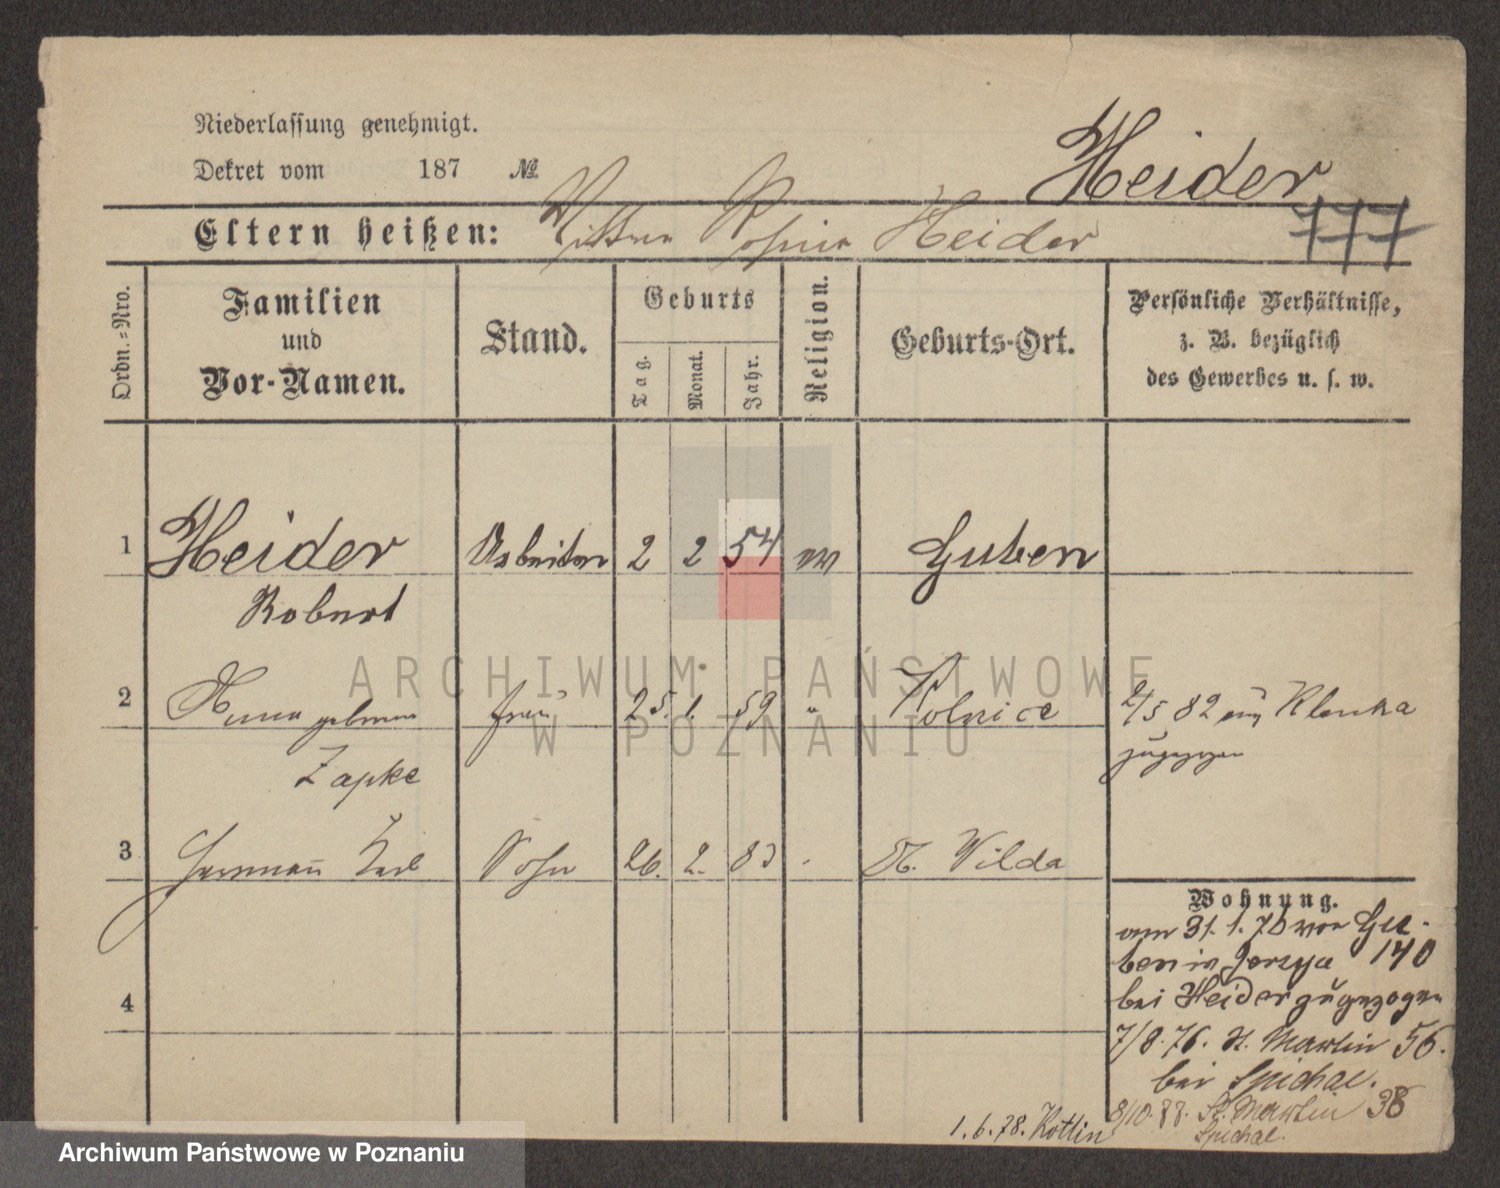 Niederlassung genehmigt.
Dekret vom 187 №
Heider
777
Eltern heißen: Rosina Heider
Ordn.-Nro.
Familien
und
Vor-Namen.
Stand.
Geburts
Tag.
Monat.
Jahr.
Religion.
Geburts-Ort.
Persönliche Verhältnisse,
z. B. bezüglich
des Gewerbes u. s. w.
1 Heider Arbeiter 2 2 54 ev Guben
Robert
2 Anna geborene Frau 25. 1. 59 " Kolnice 2/5 82 aus Klenka
Zapke zugezogen
3 Hermann Karl Sohn 26. 2. 83 St. Wilda
4
Wohnung.
am 31. 1. 76 von Gu-
ben in Jerzyce 140
bei Heider zugezogen
7/8. 76. St. Martin 56.
bei Spichal.
1. 6. 78. Kotlin
8/10. 78. St. Martin 38
Spichal.
ARCHIWUM PAŃSTWOWE
W POZNANIU
Archiwum Państwowe w Poznaniu